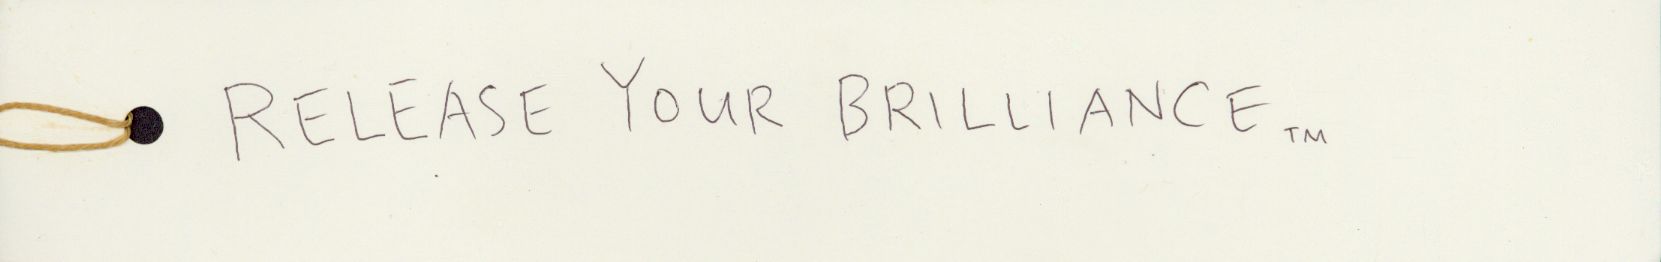 RELEASE YOUR BRILLIANCE™